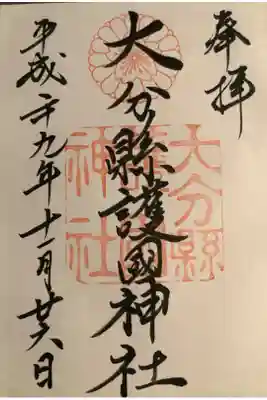 奉拝
大分縣護國神社
大分縣
護國
神社
平成二十九年十一月廿六日